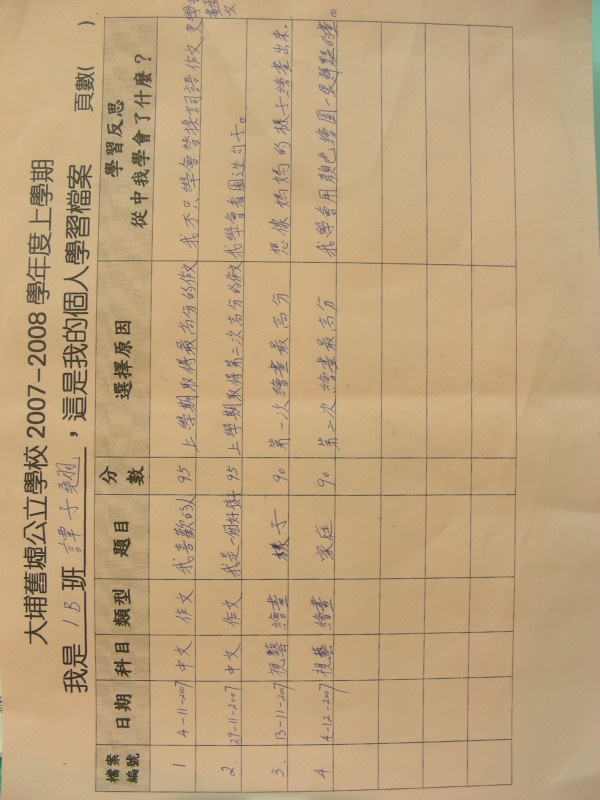 大埔舊墟公立學校 2007-2008 學年度上學期
我是 1B 班 譚子翹 , 這是我的個人學習檔案 頁數( )
檔案編號 日期 科目 類型 題目 分數 選擇原因 學習反思 從中我學會了什麼?
1 4-11-2007 中文 作文 我喜歡的人 95 上學期取得最高分的作文 我不只學會替換詞語作文,更學會
2. 29-11-2007 中文 作文 我是一個好孩子 95 上學期取得第二次高分的作文 我學會看圖造句子。
3. 13-11-2007 視藝 繪畫 樣子 90 第一次繪畫最高分 想像媽媽的樣子繪畫出來.
4 4-12-2007 視藝 繪畫 家庭 90 第二次繪畫最高分 我學會用顏色繪圖